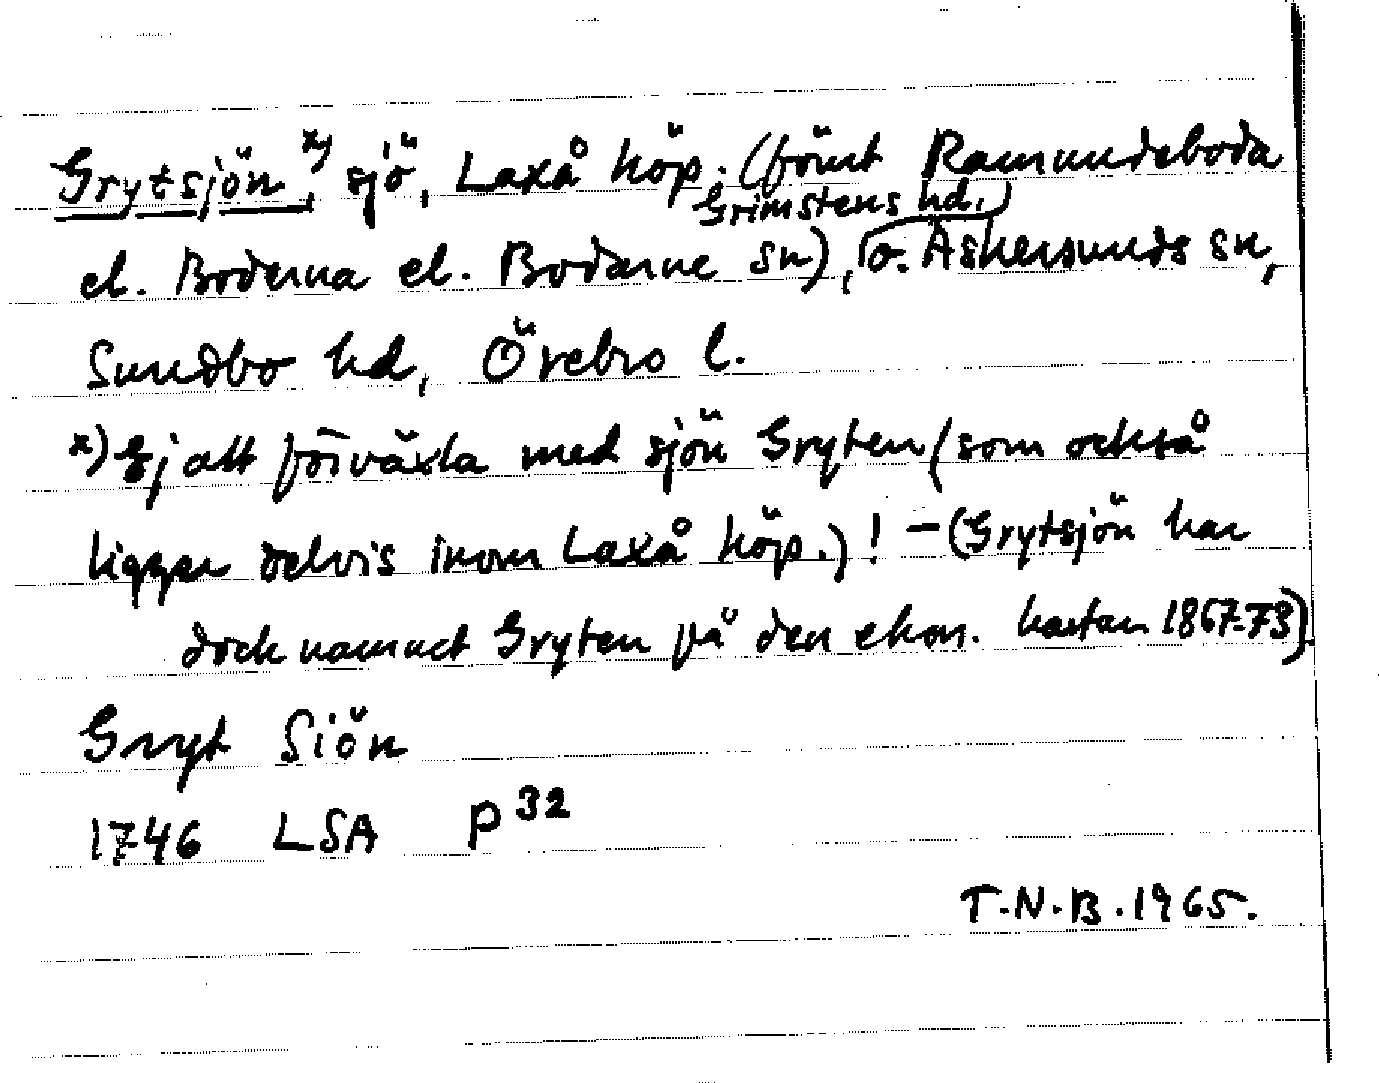 Grytsjön x), sjö, Laxå köp. (förut Ramundeboda
el. Boderna el. Bodarne sn), Grimstens hd.) o. Askersunds sn,
Sundbo hd, Örebro l.
x) Ej att förväxla med sjön Gryten (som också
ligger delvis inom Laxå köp.)! – (Grytsjön har
dock namnet Gryten på den ekon. kartan 1867-73).
Gryt Siön
1746 LSA P 32
T.N.B. 1965.